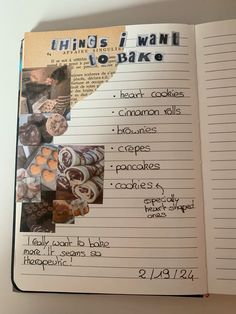 things i want
to-BAKe
AFFAIRE
SINGULIÈRE
· heart cookies
· cinnamon rolls
· brownies
· crêpes
· pancakes
· cookies
especially
heart shaped
ones
I really want to bake
more it seems so
therapeutic!
2/19/24